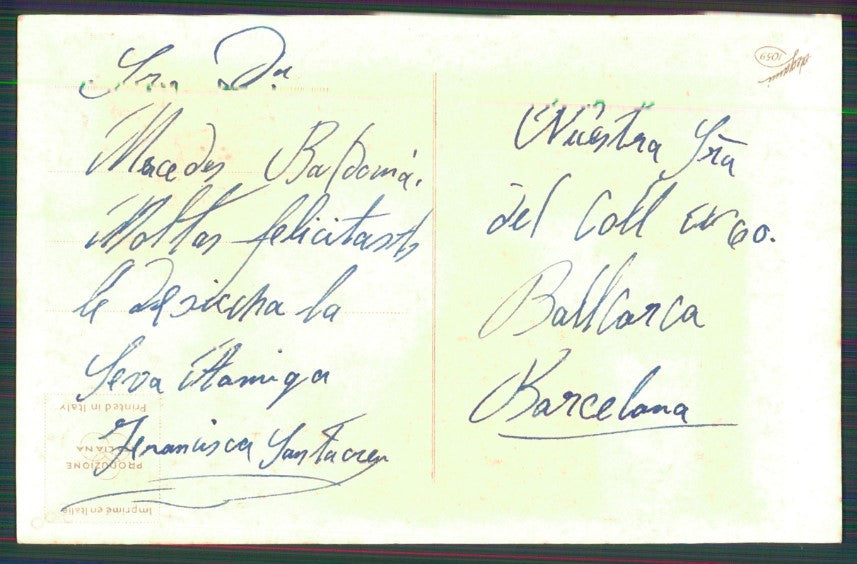 Sra. Dª
Mercedes Baldomá.
Moltas felicitasts
le desicha la
Seva Hamiga
Francisca Santacreu
Nuestra Srª
del Coll 60.
Ballcarca
Barcelona
1049
Printed in Italy
PRODUZIONE
Imprimé en Italie